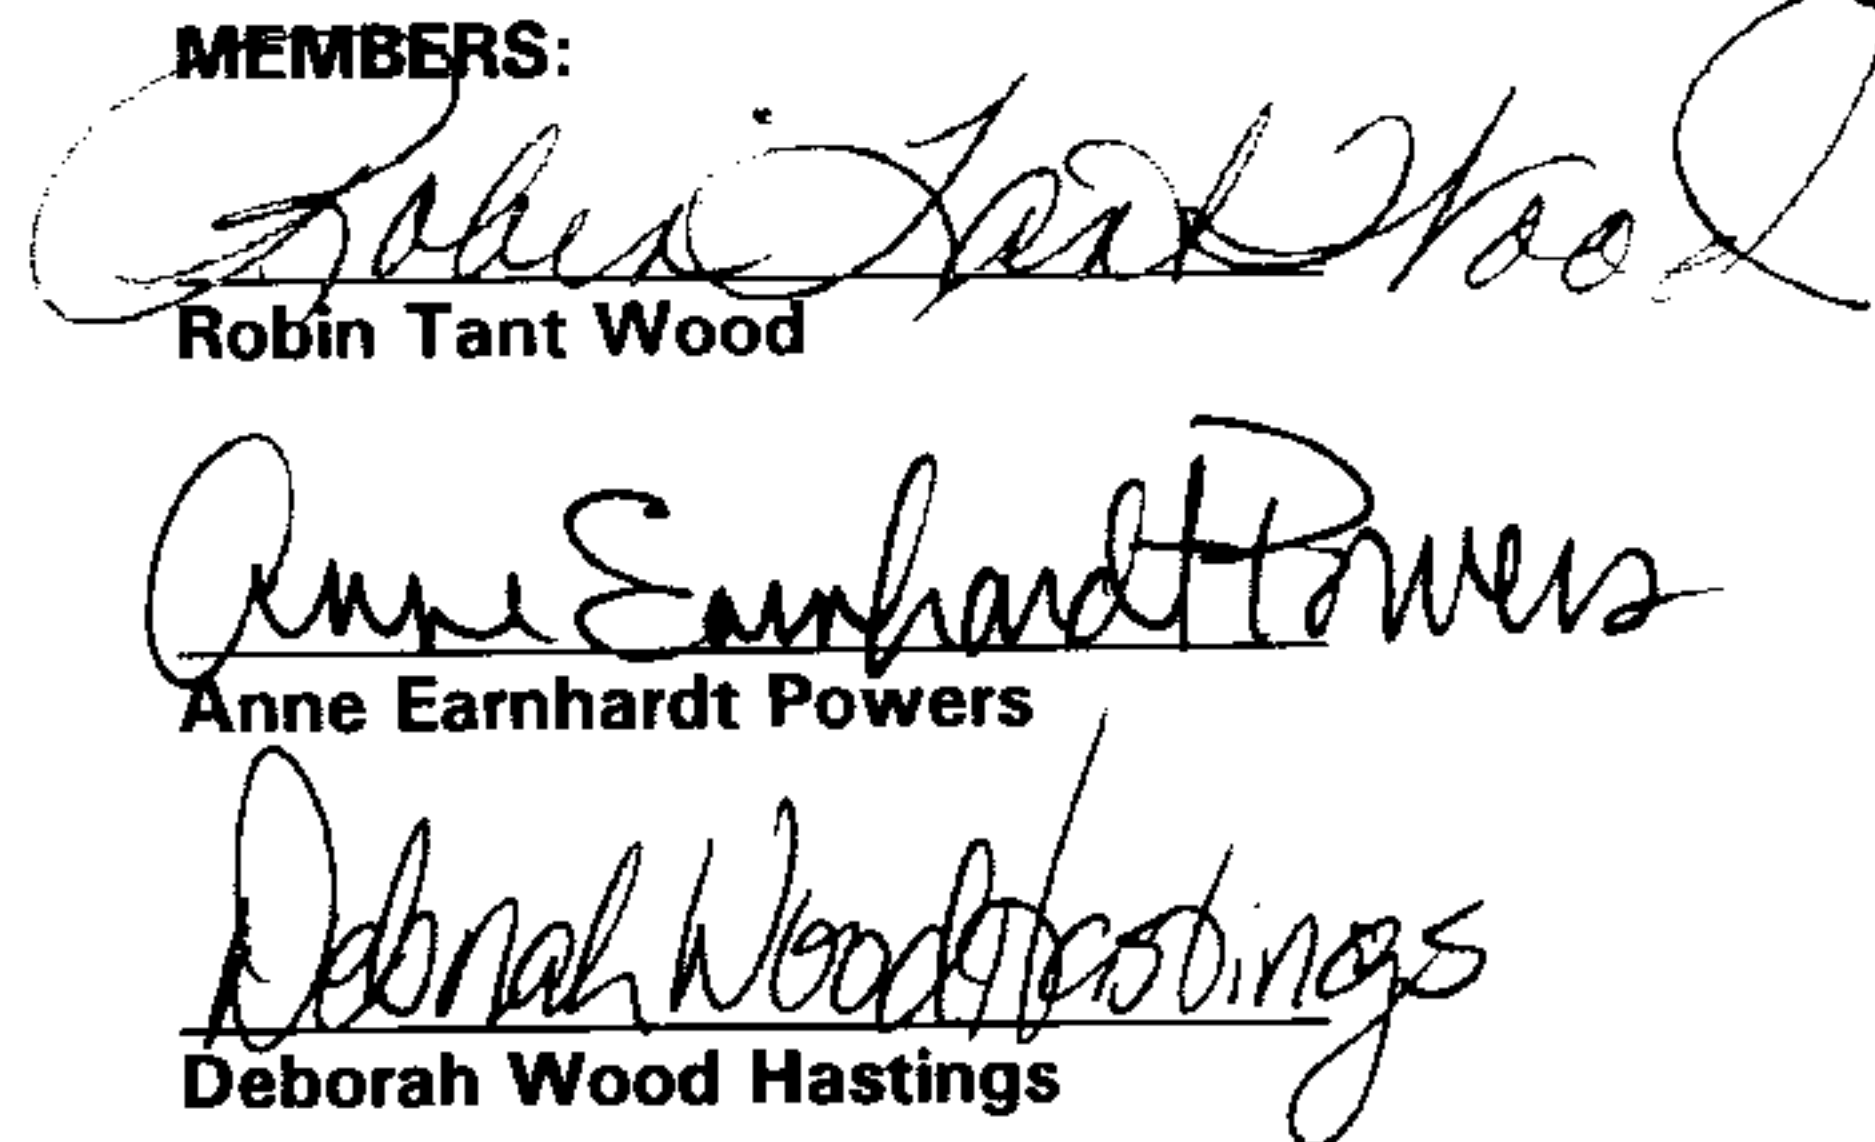 MEMBERS:
Robin Tant Wood
Robin Tant Wood
Anne Earnhardt Powers
Anne Earnhardt Powers
Deborah Wood Hastings
Deborah Wood Hastings